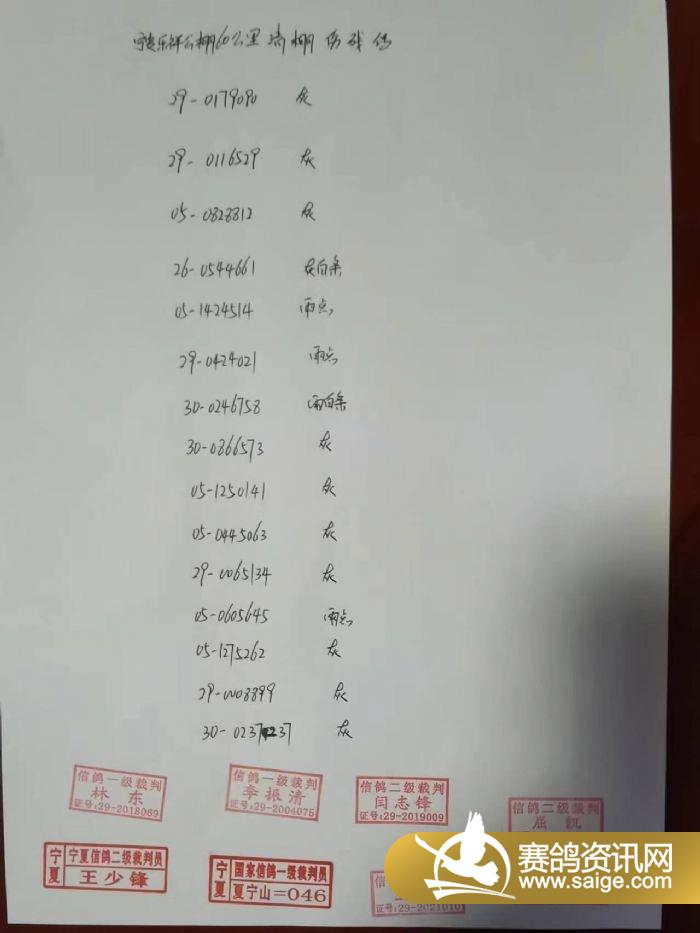 乐祥公棚60公里清棚伤残鸽
29-0179090 灰
29-0116529 灰
05-0828812 灰
26-0544661 灰白条
05-1424514 雨点
29-0424021 雨点
30-0246758 雨白条
30-0866573 灰
05-1250141 灰
05-0445063 灰
29-0065134 灰
05-0605645 雨点
05-1275262 灰
29-0008899 灰
30-0237237 灰
信鸽一级裁判
林东
证号:29-2018069
信鸽一级裁判
李振清
证号:29-2004075
信鸽二级裁判
闫志锋
证号:29-2019009
信鸽二级裁判
屈凯
宁夏 宁夏信鸽二级裁判员
王少锋
宁夏 国家信鸽一级裁判员
夏宁山=046
29-2021010
赛鸽资讯网
www.saige.com